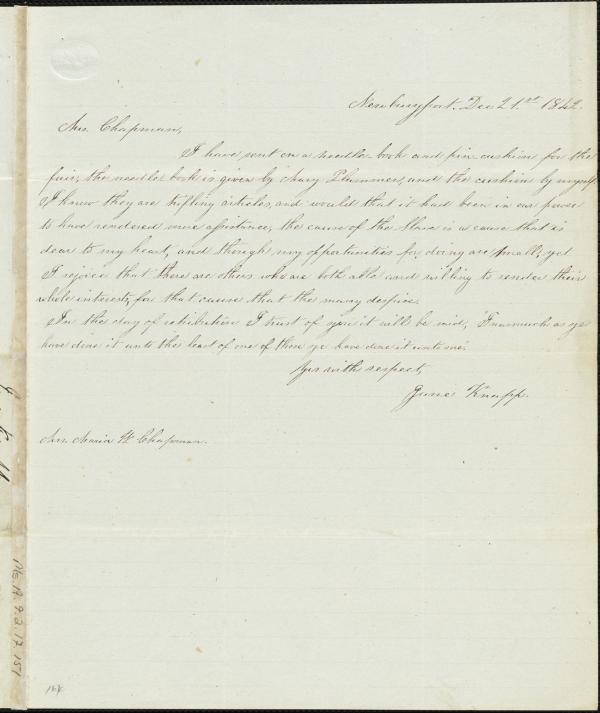 Newburyport. Dec 21.st 1842.
Mrs. Chapman,
I have sent on a needle book and pin cushion for the
fair, the needle book is given by Mary Plummer, and the cushion by myself.
I know they are trifling articles, and would that it had been in our power
to have rendered more assistance, the cause of the Slave is a cause that is
dear to my heart, and though my opportunities for doing are small, yet
I rejoice that there are others who are both able and willing to render their
whole interest, for that cause that the many despise.
In the day of retribution I trust of you it will be said, Inasmuch as ye
have done it unto the least of one of these ye have done it unto me.
Yrs with respect,
Jane Knapp.
Mrs. Maria W. Chapman.
Ms. A. 9. 2. 17. 151